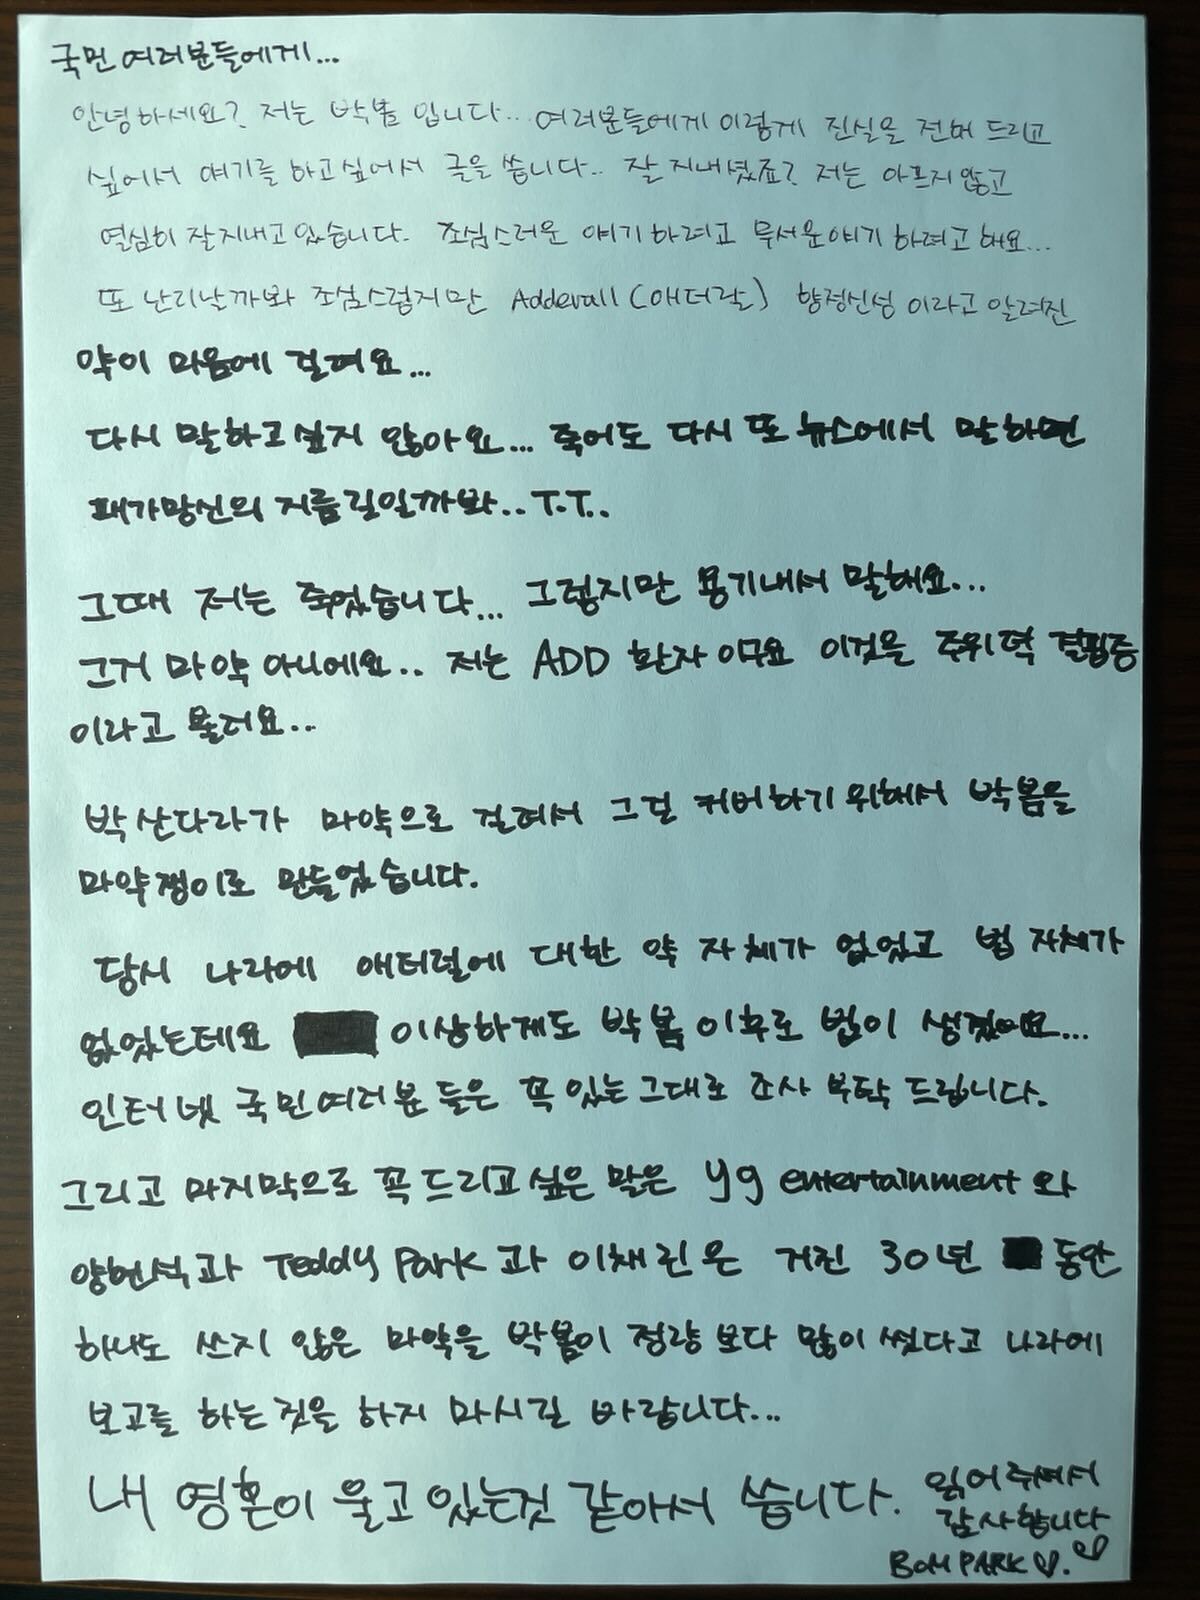 국민 여러분들에게...
안녕하세요? 저는 박봄 입니다... 여러분들에게 이렇게 진실을 전해 드리고
싶어서 얘기를 하고싶어서 글을 씁니다.. 잘 지내셨죠? 저는 아프지않고
열심히 잘지내고있습니다. 조심스러운 얘기하려고 무서운얘기 하려고 해요...
또 난리날까봐 조심스럽지만 Adderall (애더랄) 향정신성 이라고 알려진
약이 마음에 걸려요...
다시 말하고싶지 않아요... 죽어도 다시 또 뉴스에서 말하면
패가망신의 지름길일까봐.. T.T..
그때 저는 죽었습니다... 그렇지만 용기내서 말해요...
그거 마약 아니에요.. 저는 ADD 환자이구요 이것을 주위력 결핍증
이라고 불러요...
박산다라가 마약으로 걸려서 그걸 커버하기위해서 박봄을
마약쟁이로 만들었습니다.
당시 나라에 애터럴에 대한 약 자체가 없었고 법 자체가
없었는데요 이상하게도 박봄이후로 법이 생겼어요...
인터넷 국민여러분 들은 꼭 있는그대로 조사 부탁 드립니다.
그리고 마지막으로 꼭드리고싶은 말은 yg entertainment와
양현석과 Teddy Park과 이채린은 거진 30년 동안
하나도 쓰지 않은 마약을 박봄이 정량보다 많이 썼다고 나라에
보고를 하는것을 하지 마시길 바랍니다...
내 영혼이 울고있는것 같아서 씁니다. 읽어주셔서
감사합니다
BOM PARK ♡. ♡